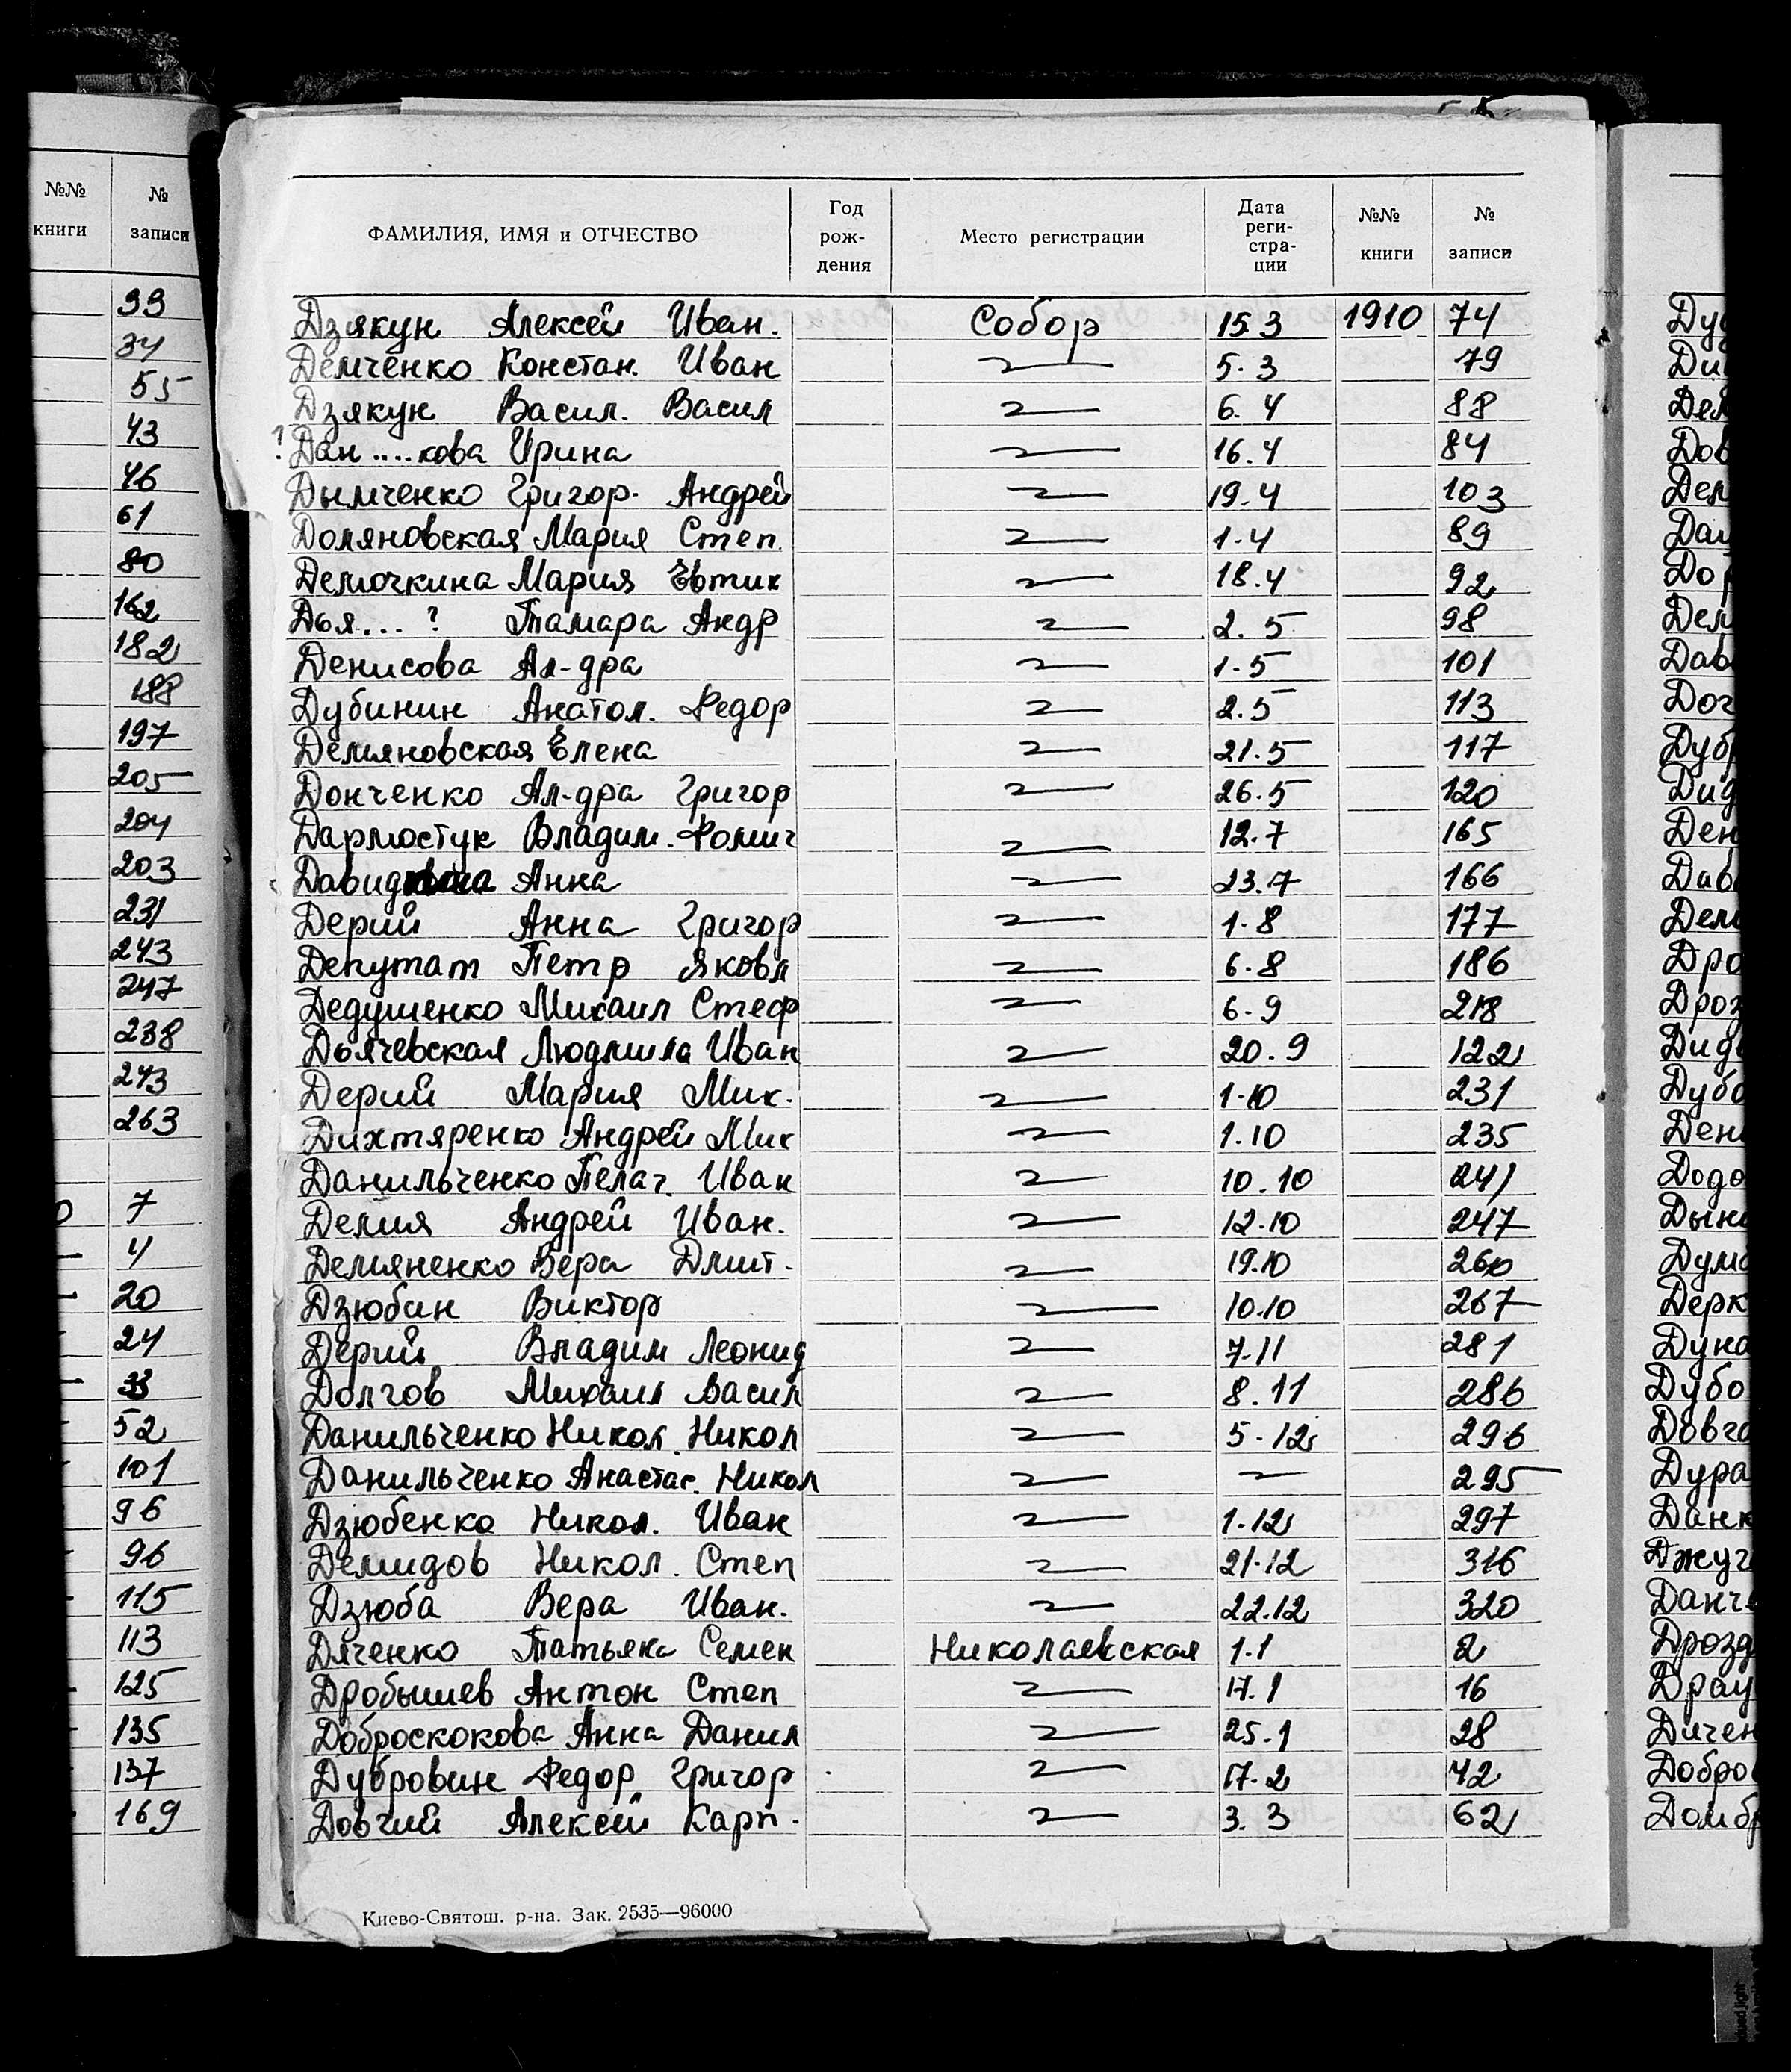 №№ книги
№ записи
33
34
55
43
46
61
80
162
182
188
197
205
204
203
231
243
247
238
243
263
7
4
20
24
33
52
101
96
96
115
113
125
135
137
169
ФАМИЛИЯ, ИМЯ и ОТЧЕСТВО Год рож- дения Место регистрации Дата реги- стра- ции №№ книги № записи
Дзякун Алексей Иван. Собор 15.3 1910 74
Демченко Констан. Иван 5.3 79
Дзякун Васил. Васил 6.4 88
? Дан....кова Ирина 16.4 84
Дымченко Григор. Андрей 19.4 103
Доляновская Мария Степ. 1.4 89
Демочкина Мария Евтих 18.4 92
Дья... ? Тамара Андр 2.5 98
Денисова Ал-дра 1.5 101
Дубинин Анатол. Федор 2.5 113
Демяновская Елена 21.5 117
Донченко Ал-дра Григор 26.5 120
Дармостук Владим. Фомич 12.7 165
Анна 23.7 166
Дерий Анна Григор 1.8 177
Депутат Петр Яковл 6.8 186
Дедушенко Михаил Стеф 6.9 218
Дьячевская Людмила Иван 20.9 122
Дерий Мария Мик. 1.10 231
Дихтяренко Андрей Мих 1.10 235
Данильченко Пелаг. Иван 10.10 241
Демия Андрей Иван. 12.10 247
Демяненко Вера Дмит. 19.10 260
Дзюбин Виктор 10.10 267
Дерий Владим Леонид 7.11 281
Долгов Михаил Васил 8.11 286
Данильченко Никол. Никол 5.12 296
Данильченко Анастас. Никол 295
Дзюбенко Никол. Иван 1.12 297
Демидов Никол. Степ 21.12 316
Дзюба Вера Иван. 22.12 320
Дяченко Татьяна Семен Николаевская 1.1 2
Дробышев Антон Степ 17.1 16
Доброскокова Анна Данил 25.1 28
Дубровин Федор Григор 17.2 42
Довгий Алексей Карп. 3.3 62
Киево-Святош. р-на. Зак. 2535—96000